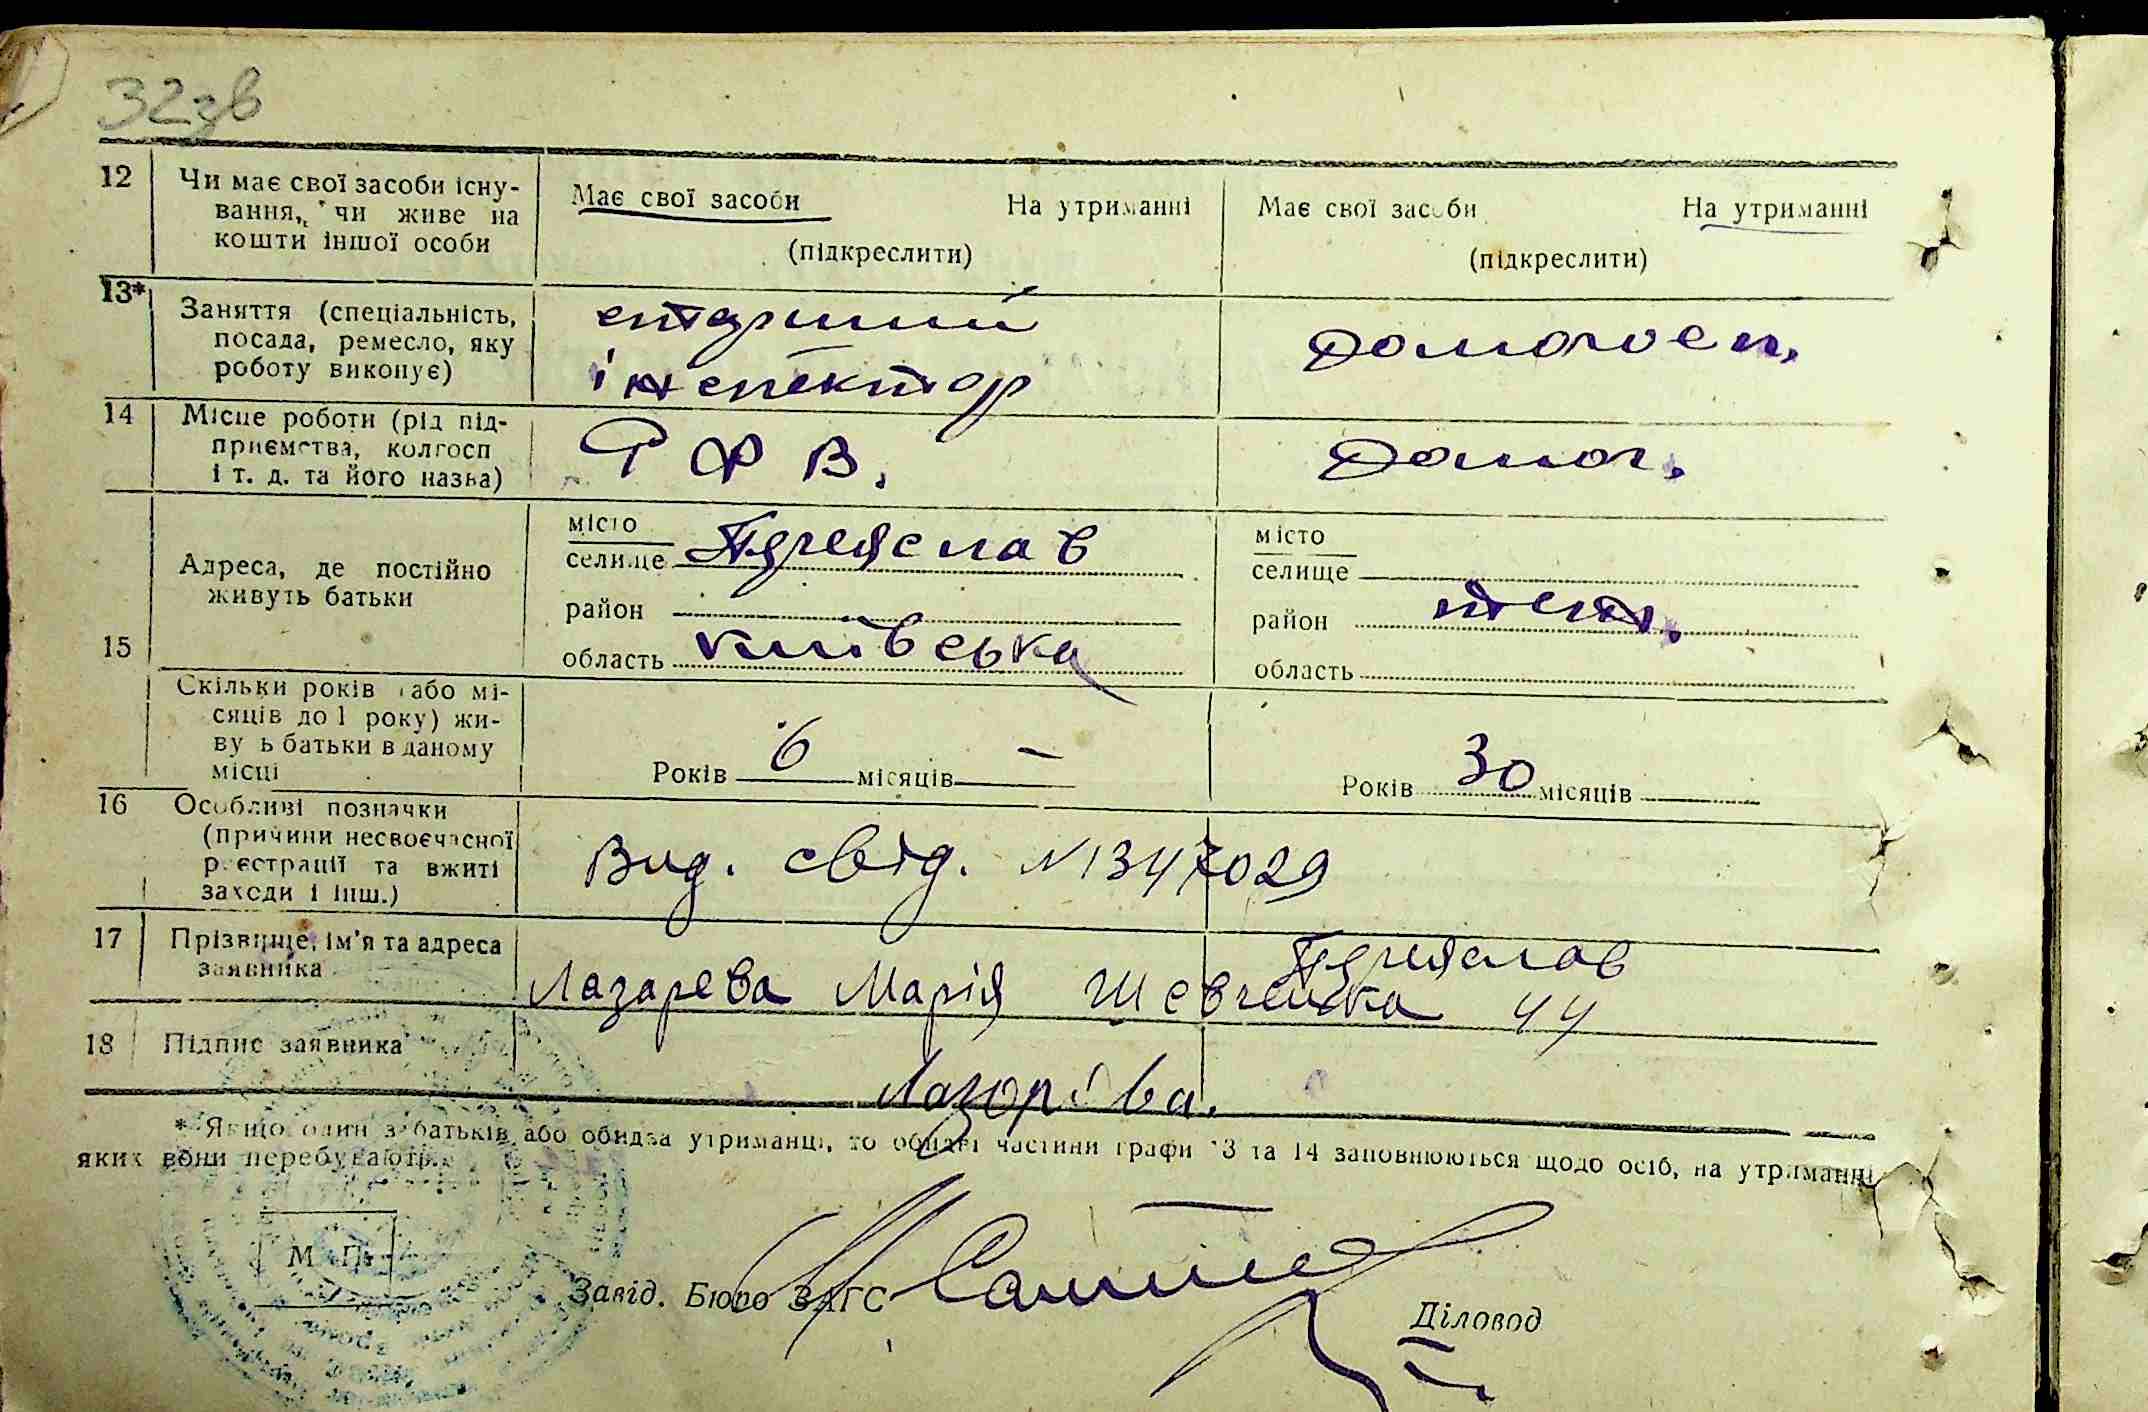 32зв
12 Чи має свої засоби існу- Має свої засоби На утриманні Має свої засоби На утриманні
вання, чи живе на
кошти іншої особи (підкреслити) (підкреслити)
13* Заняття (спеціальність, старший
посада, ремесло, яку інспектор домогосп.
роботу виконує)
14 Місце роботи (рід під-
приємства, колгосп РФВ. домог.
і т. д. та його назва)
місто місто
селище Переяслав селище
Адреса, де постійно
живуть батьки район район теж.
15 область київська область
Скільки років (або мі-
сяців до 1 року) жи-
вуть батьки в даному
місці Років 6 місяців — Років 30 місяців
16 Особливі позначки
(причини несвоєчасної
реєстрації та вжиті Вид. свід. N 1347029
заходи і інш.)
17 Прізвище, ім'я та адреса Переяслав
заявника Лазарева Марія Шевченка 44
18 Підпис заявника
* Якщо один з батьків або обидва утриманці, то обидві частини графи 13 та 14 заповнюються щодо осіб, на утриманні
яких вони перебувають.
М. П.
Завід. Бюро ЗАГС
Діловод